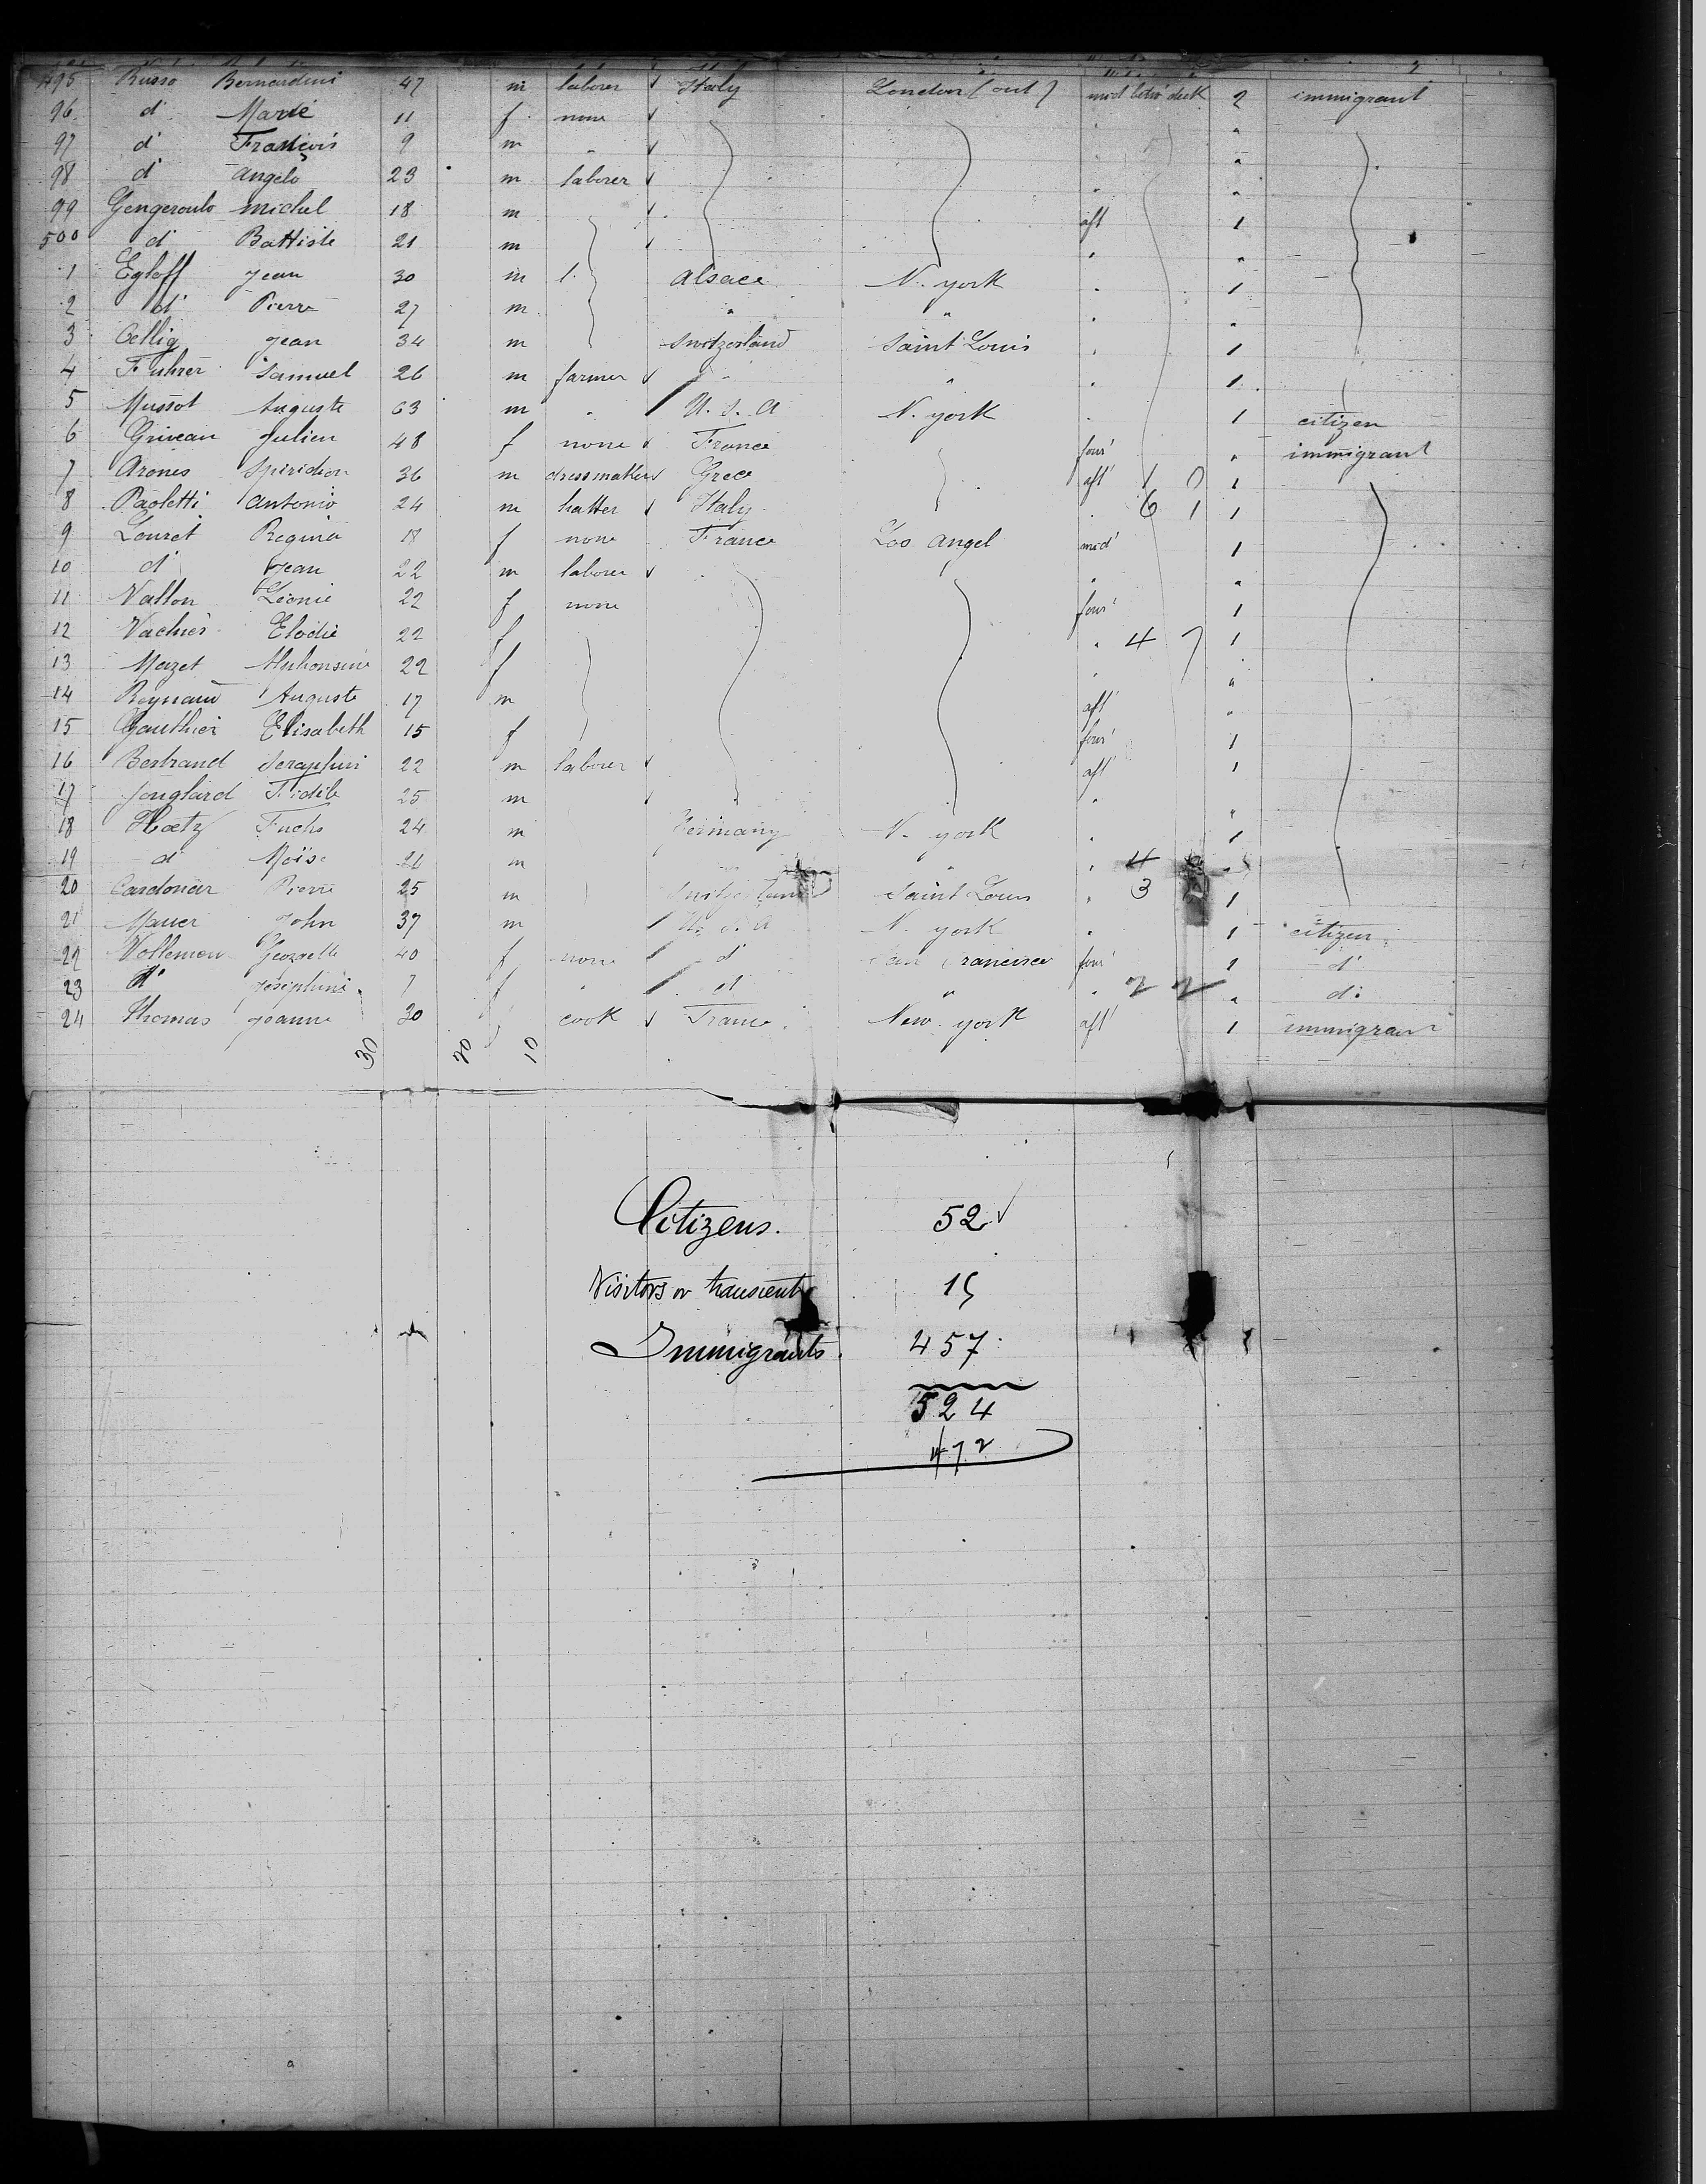 495 Russo Bernardini 47 m laborer Italy London (out) mid betw' deck 2 immigrant
96 d' Marie 11 f none "
97 d' François 9 m " "
98 d' Angelo 23 m laborer "
99 Michel 18 m aft 1
500 d' Battiste 21 m " "
1 Egloff Jean 30 m Alsace N. york " 1
2 d' Pierre 27 m " " " "
3 Jean 34 m Switzerland Saint Louis " 1
4 Fuhrer Samuel 26 m farmer " " " 1
5 Mussot Auguste 63 m " U. S. A N. york " 1 citizen
6 Griveau Julien 48 f none France four' " immigrant
7 Arones Spiridion 36 m dressmaker Grece aft' 1 0 1
8 Paoletti Antonio 24 m hatter Italy " 6 1 1
9 Louret Regina 18 f none France Los Angel mid' 1
10 d' Jean 22 m laborer " "
11 Vallon Léonie 22 f none four' 1
12 Elodie 22 f " 4 7 1
13 Mazet Alphonsine 22 f " "
14 Reynaud Auguste 17 m aft' "
15 Gauthier Elisabeth 15 f four' 1
16 Bertrand Seraphin 22 m laborer aft' 1
17 Jouglard Fidèle 25 m " "
18 Fuchs 24 m Germany N. york " 1
19 d' Moïse 21 m " " 4
20 Pierre 25 m Switzerland Saint Louis " 3 1
21 Mauer John 37 m U. S. A N. york " 1 citizen
22 Georgette 40 f none d' San Francisco four' 1 d'
23 d' Joséphine 7 f " d' " " 2 2 " d:
24 Thomas Jeanne 30 cook France New. york aft' 1 immigrant
30 20 10
Citizens. 52
Visitors or transient 15
Immigrants. 457
524
472